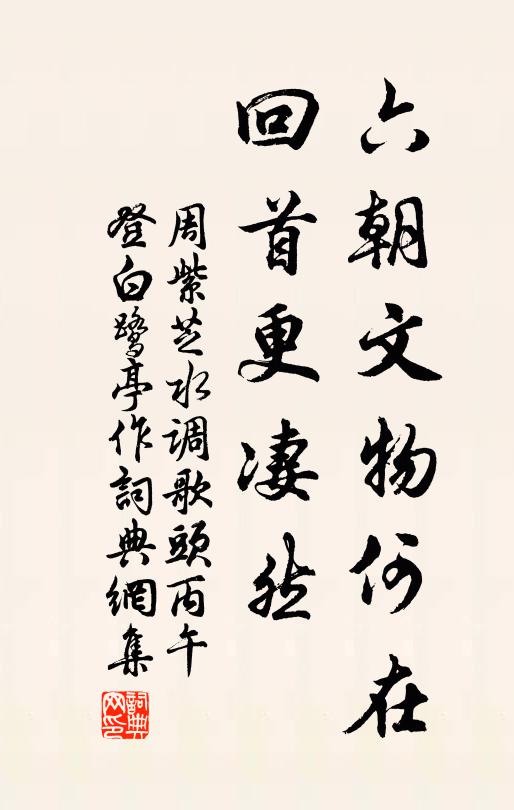 六朝文物何在
回首更凄然
周紫芝水調歌頭丙午
登白鷺亭作詞典網集
詞典
网印